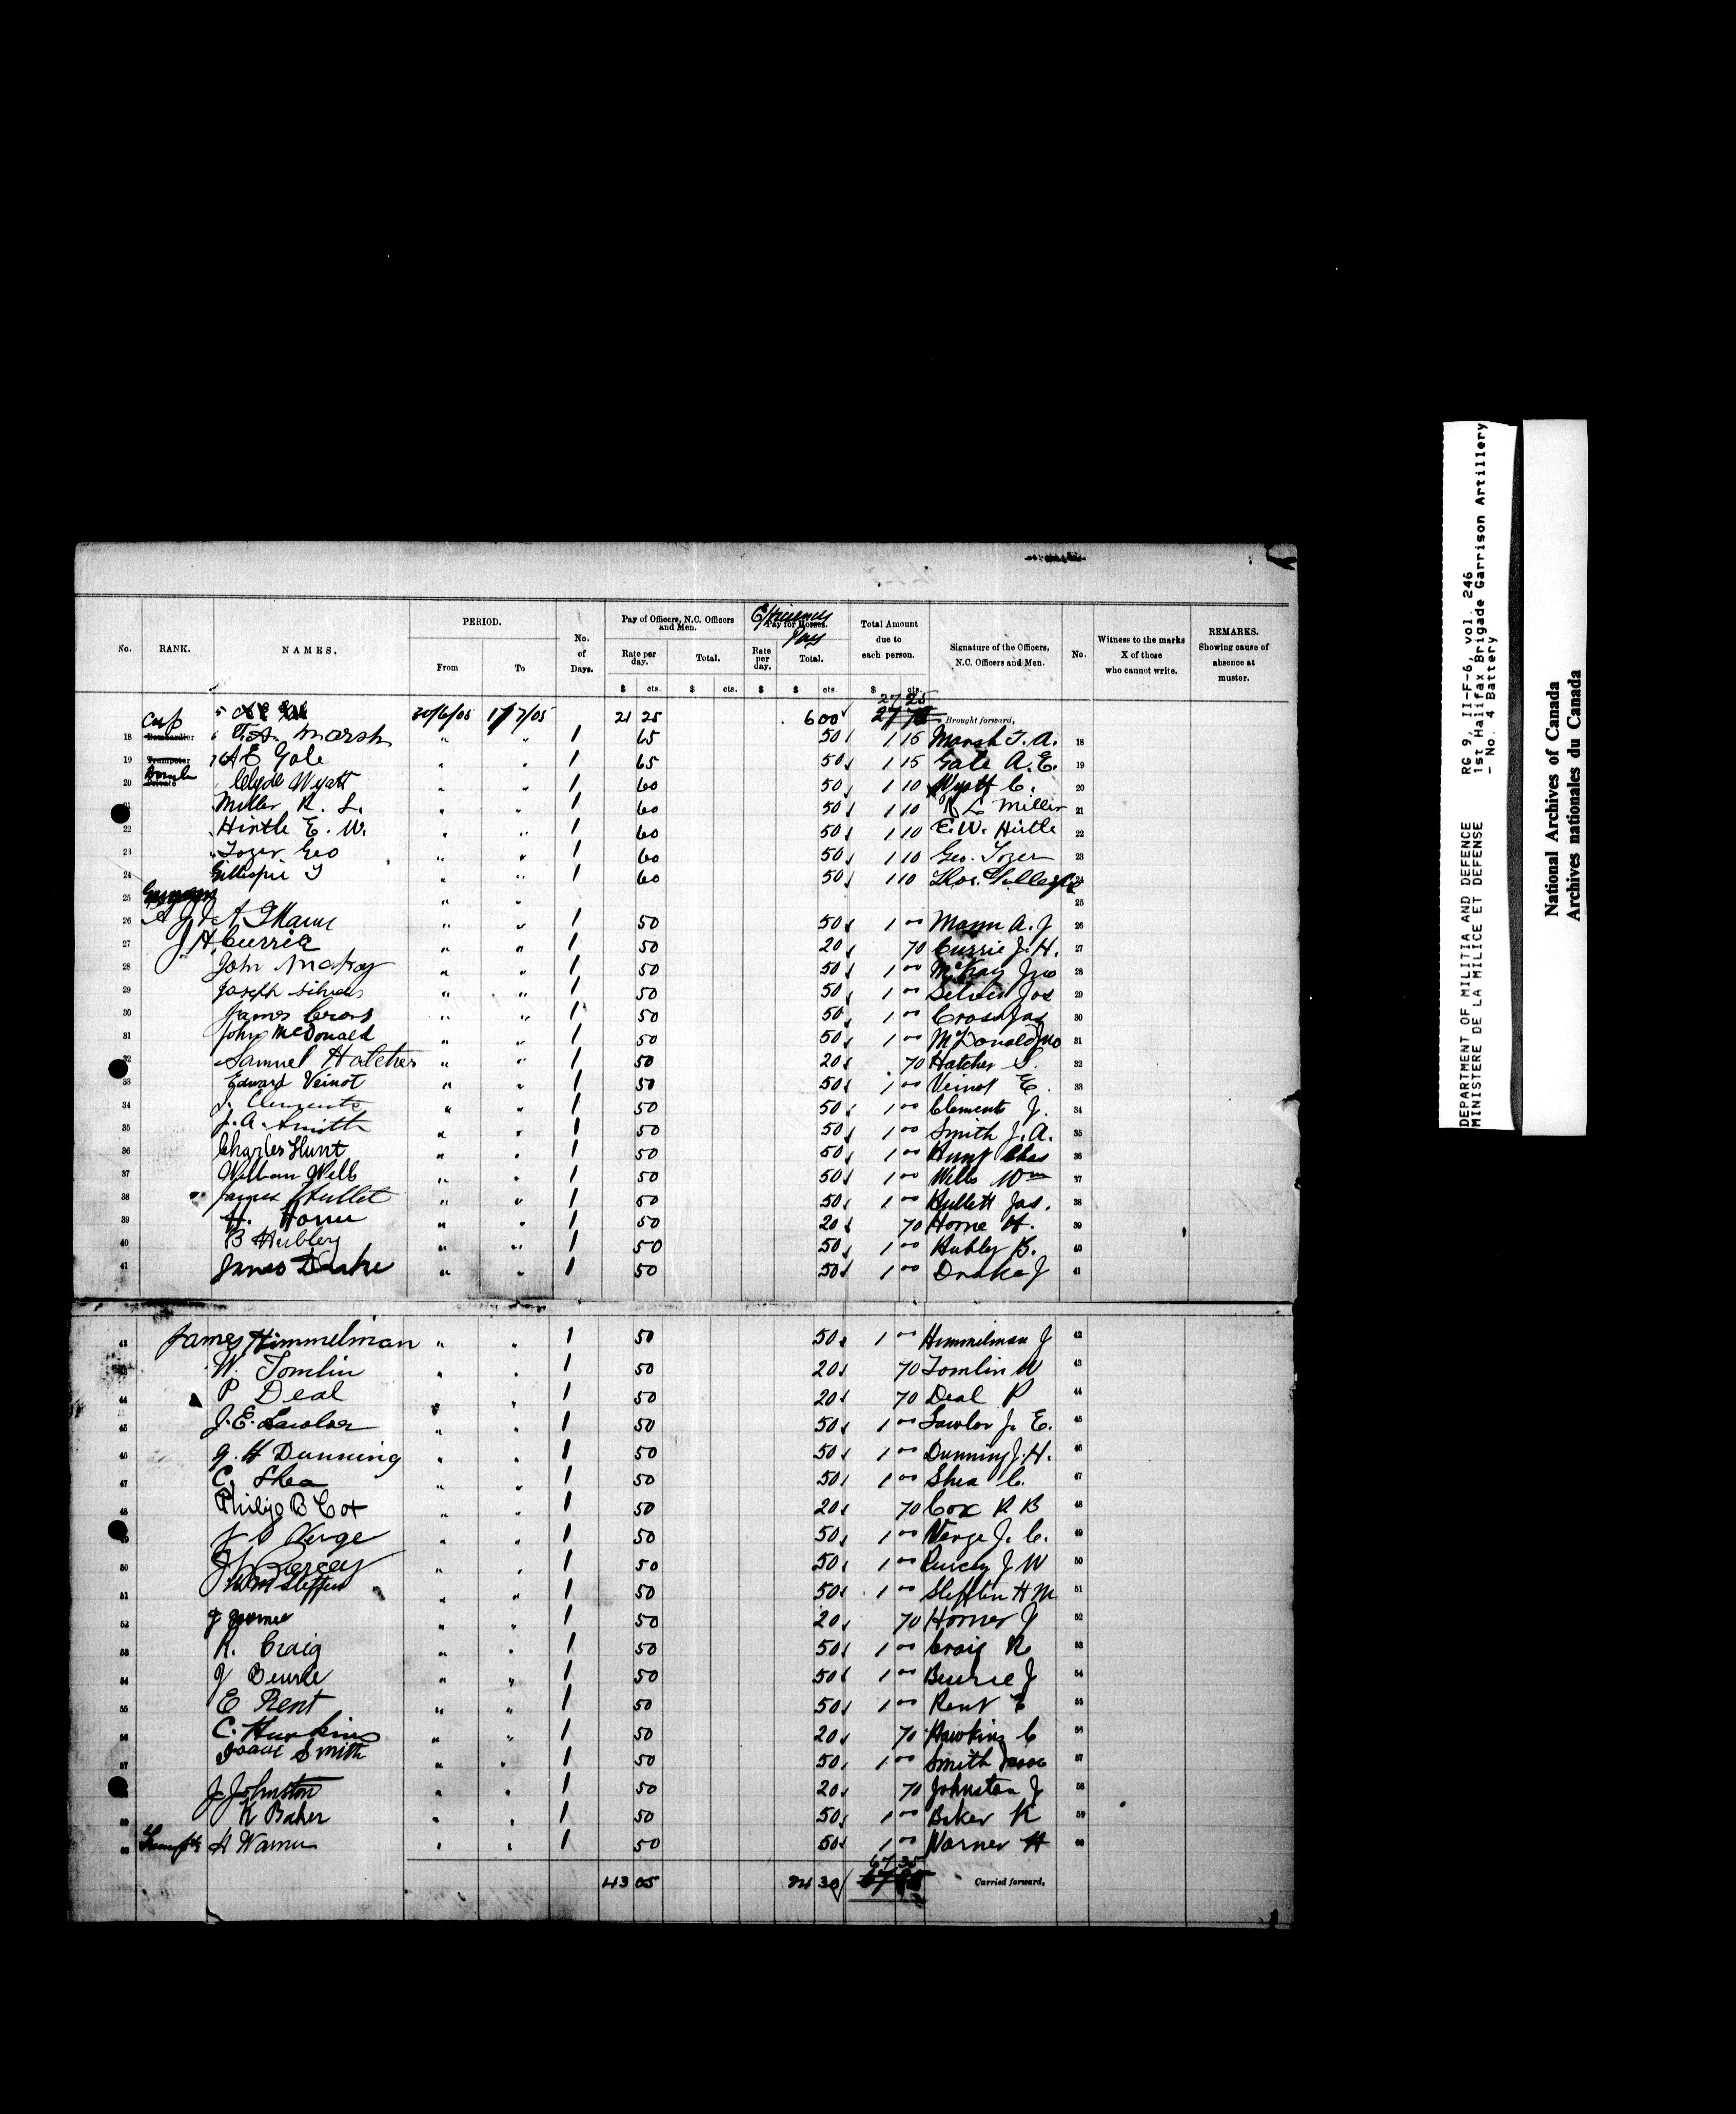 No. RANK. NAMES. PERIOD. From To No. of Days. Pay of Officers, N.C. Officers and Men. Rate per day. Total. Efficiency Pay for Horses. Pay Rate per day. Total. Total Amount due to each person. Signature of the Officers, N.C. Officers and Men. No. Witness to the marks X of those who cannot write. REMARKS. Showing cause of absence at muster.
$ cts. $ cts. $ $ cts. $ cts.
27 25
5 30/6/05 1/7/05 21 25 6 00 Brought forward,
18 Corp Bombardier 6 T.A. Marsh " " 1 65 50 1 15 Marsh T. A. 18
19 Trumpeter 7 A E Gale " " 1 65 50 1 15 Gale A. E. 19
20 Bomb Clyde Wyatt " " 1 60 50 1 10 Wyatt C. 20
Miller R. L. " " 1 60 50 1 10 R L Miller 21
22 Hirtle E. W. " " 1 60 50 1 10 E. W. Hirtle 22
23 Tozer Geo " " 1 60 50 1 10 Geo. Tozer 23
24 Gillespie T " " 1 60 50 1 10 Thos. Gillespie 24
25 " " 25
26 A J Mann " " 1 50 50 1 00 Mann A. J 26
27 J H Currie " " 1 50 20 70 Currie J. H. 27
28 John McKay " " 1 50 50 1 00 McKay Jno 28
29 Joseph Silver " " 1 50 50 1 00 Silver Jos 29
30 James Cross " " 1 50 50 1 00 Cross Jas 30
31 John McDonald " " 1 50 50 1 00 McDonald Jno 31
32 Samuel Hatcher " " 1 50 20 70 Hatcher S. 32
33 Edward Veinot " " 1 50 50 1 00 Veinot E. 33
34 J. Clements " " 1 50 50 1 00 Clements J. 34
35 J. A. Smith " " 1 50 50 1 00 Smith J. A. 35
36 Charles Hunt " " 1 50 50 1 00 Hunt Chas 36
37 William Wells " " 1 50 50 1 00 Wells Wm 37
38 James Hullet " " 1 50 50 1 00 Hullett Jas. 38
39 H. Horne " " 1 50 20 70 Horne H. 39
40 B Hubley " " 1 50 50 1 00 Hubley B. 40
41 James Drake " " 1 50 50 1 00 Drake J 41
42 James Himmelman " " 1 50 50 1 00 Himmelman J 42
W. Tomlin " " 1 50 20 70 Tomlin W 43
44 P Deal " " 1 50 20 70 Deal P 44
45 J. E. Lawlor " " 1 50 50 1 00 Lawlor J. E. 45
46 J. H Dunning " " 1 50 50 1 00 Dunning J. H. 46
47 C. Shea " " 1 50 50 1 00 Shea C. 47
48 Philip B Cox " " 1 50 20 70 Cox P B 48
J C Verge " " 1 50 50 1 00 Verge J. C. 49
50 J W Purcey " " 1 50 50 1 00 Purcey J W 50
51 H M Steffin " " 1 50 50 1 00 Steffin H M 51
52 J " " 1 50 20 70 Horner J 52
53 R. Craig " " 1 50 50 1 00 Craig R 53
54 J " " 1 50 50 1 00 J 54
55 E Rent " " 1 50 50 1 00 Rent E 55
56 C. Hawkins " " 1 50 20 70 Hawkins C 56
57 Isaac Smith " " 1 50 50 1 00 Smith Isaac 57
J. Johnston " " 1 50 20 70 Johnston J 58
59 K Baker " " 1 50 50 1 00 Baker K 59
60 H Warner " " 1 50 50 1 00 Warner H 60
67 35
43 05 24 30 Carried forward,
DEPARTMENT OF MILITIA AND DEFENCE RG 9, II-F-6, vol. 246
MINISTERE DE LA MILICE ET DEFENSE 1st Halifax Brigade Garrison Artillery
- No. 4 Battery
National Archives of Canada
Archives nationales du Canada